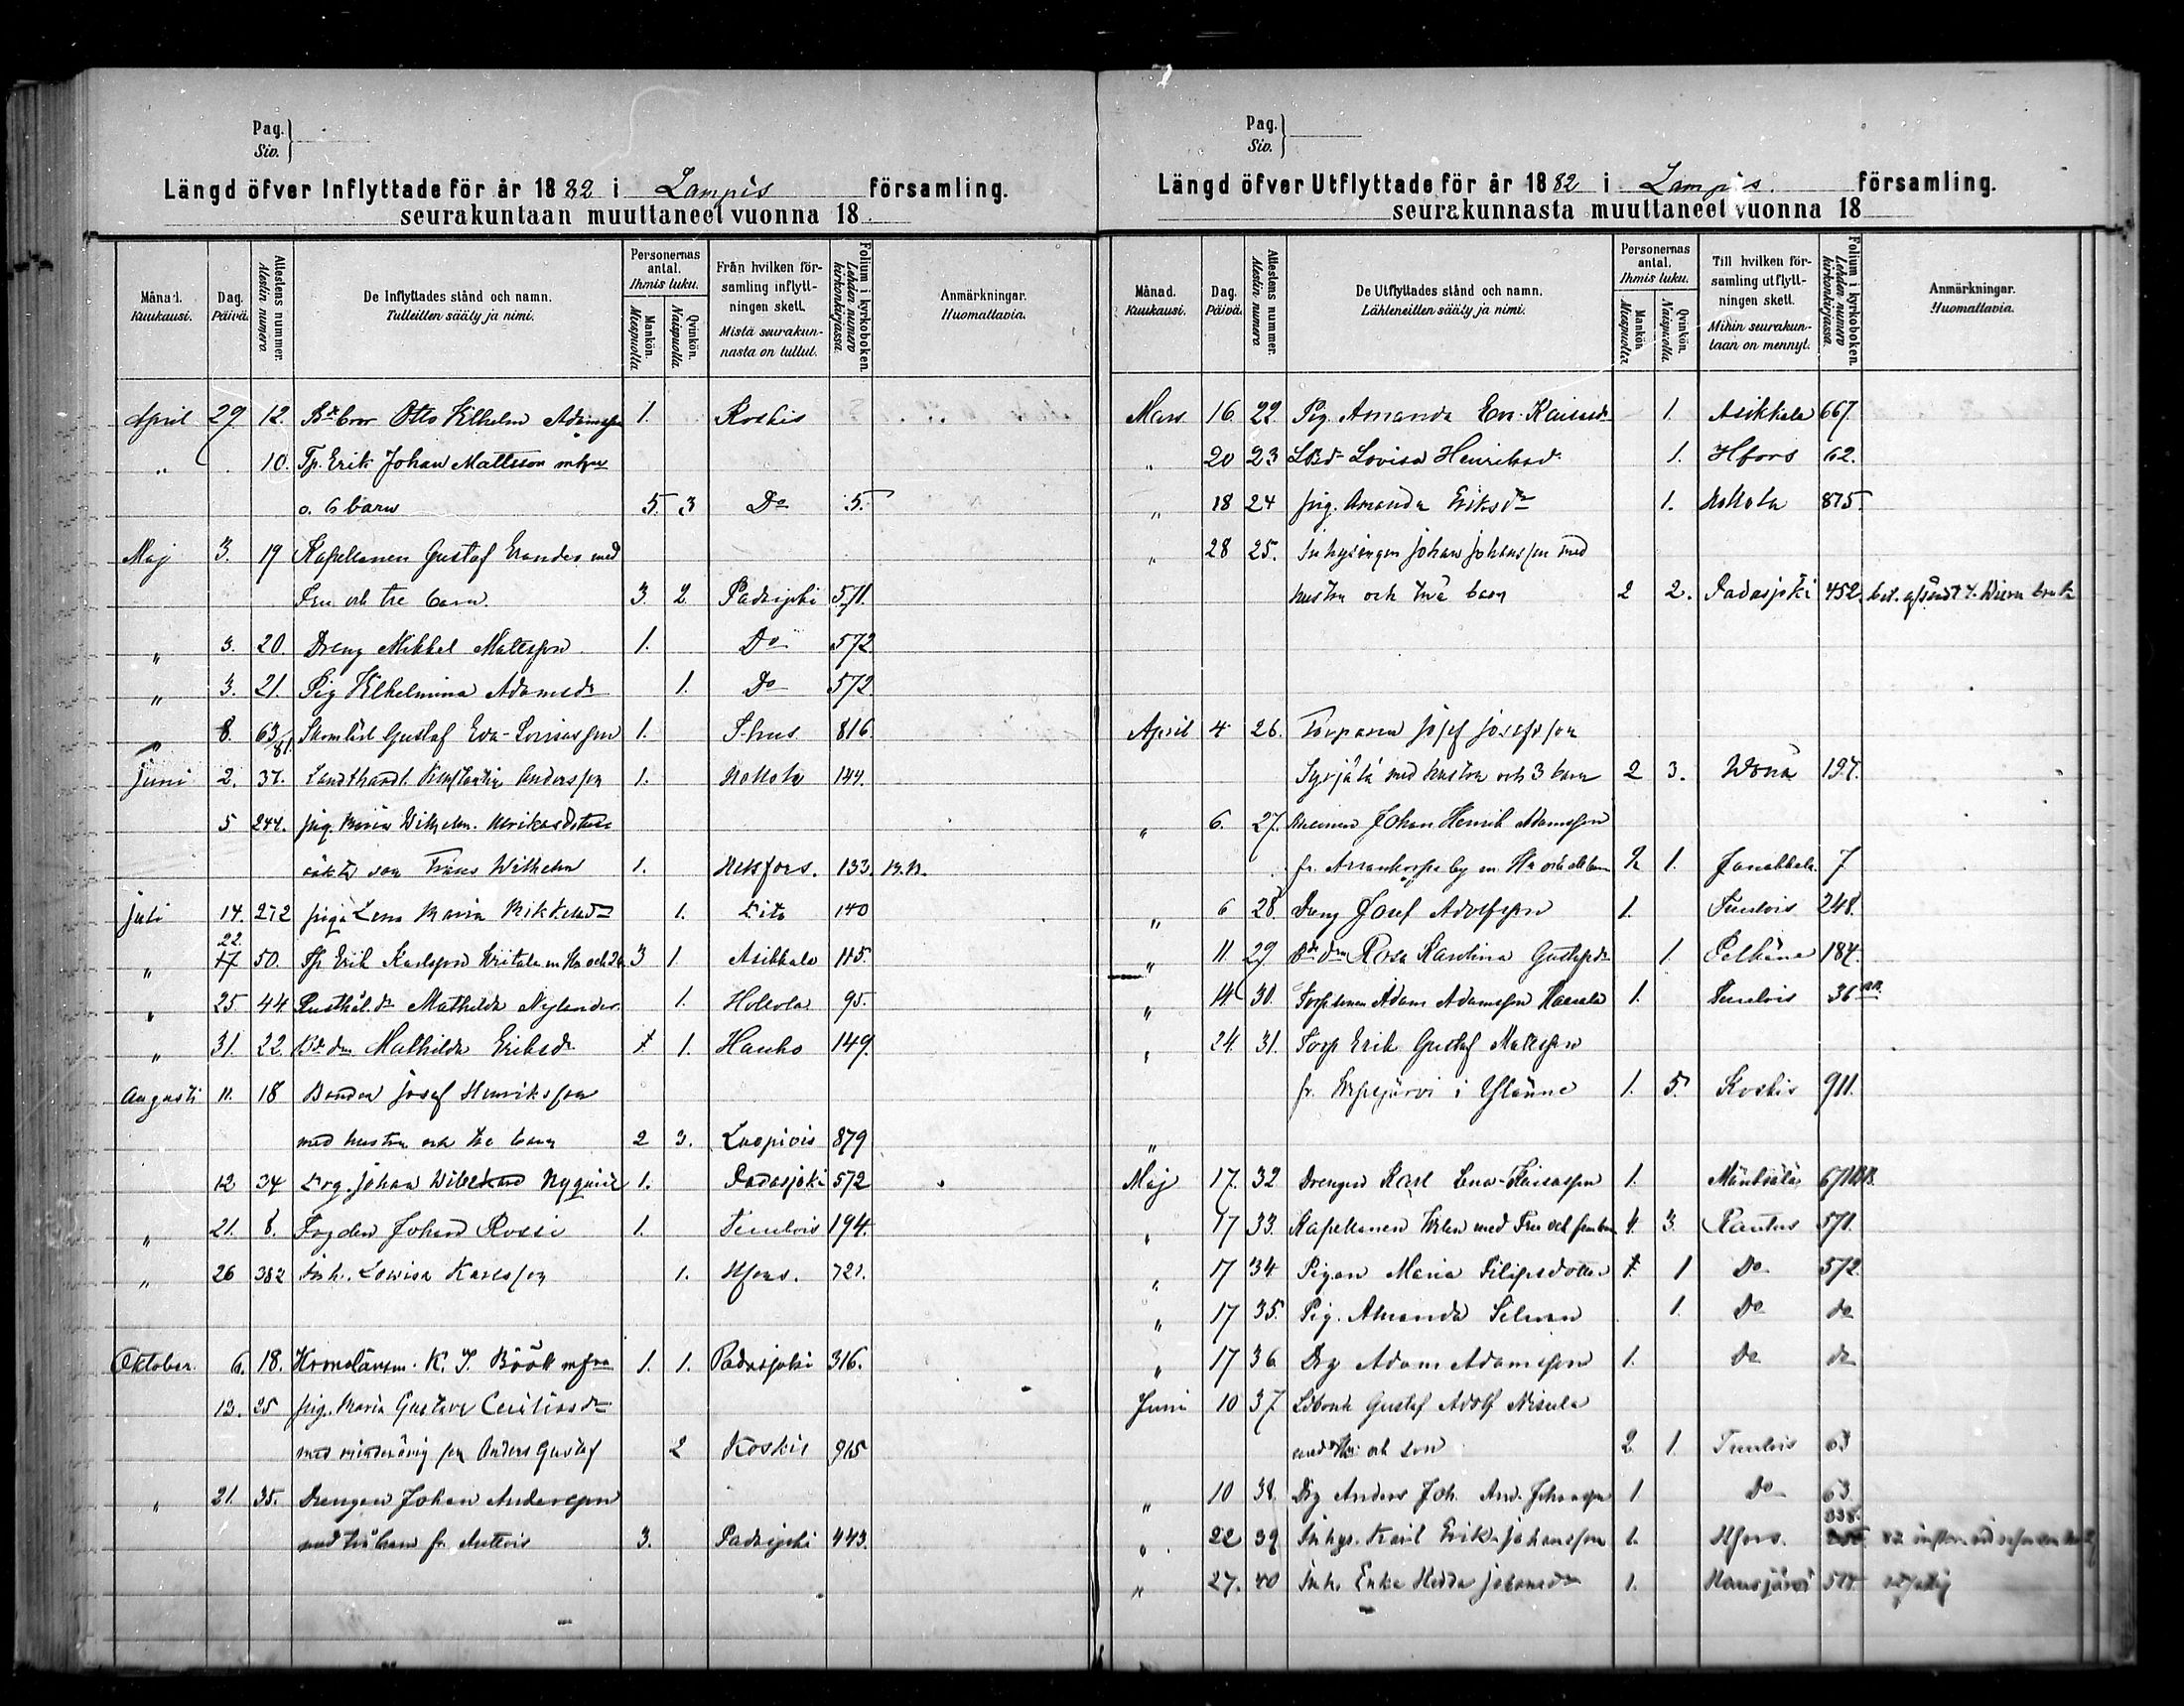 Pag.
Siv.
Längd öfver Inflyttade för år 1882 i Lampis församling.
seurakuntaan muuttaneet vuonna 18
Månad. Kuukausi.
Dag. Päivä.
Attestens nummer. Atestin numero.
De Inflyttades stånd och namn. Tulleitten sääty ja nimi.
Personernas antal. Ihmis luku.
Mankön. Miespuolta
Qvinkön. Naispuolta.
Från hvilken församling inflyttningen skett. Mistä seurakunnasta on tullut.
Folium i kyrkoboken. Lehden numero kirkonkirjassa.
Anmärkningar. Huomattavia.
April 29 12. Otto Wilhelm Adamsson 1. Koskis
" 10. Tp. Erik Johan Mattsson
o. 6 barn 5. 3 Do 5.
Maj 3. 19 Kapellanen Gustaf med
Fru och tre barn. 3. 2 Padasjoki 571.
" 3. 20. Dreng Mikkel Mattsson 1. Do 572.
" 3. 21. Pig Wilhelmina Adamsdr 1. Do 572.
" 8. 63/81 Gustaf Eva-Lovisasson 1. T-hus 816.
Juni 2. 37. Landthandl. Konstantin Andersson 1. Hollola 144.
5 244. pig. Maria Wilhelm. Ulrikasdotters
son Frans Wilhelm 1. Helsfors. 133.
Juli 14. 272 piga Lena Maria Mikkelsdr 1. Eito 140
22.
" 17 50. Tp Erik Karlsson 3 1. Asikkala 115.
" 25 44 Rusthål.dr Mathilda Nylander. 1. Hollola 95.
" 31. 22. Mathilda Eriksdr 1. Hauho 149.
Augusti 11. 18 Bonden Josef Henriksson
med hustru och tre barn 2 3. Luopiois 879
12 34 Johan Nyqvist 1. Padasjoki 572
" 21. 8. Johan Rossi 1. Tenlois 194.
" 26 382 Inh. Lowisa Karlsson 1. Hfors. 721.
Oktober. 6. 18. Kronolänsm. K. J. Böök m fru 1. 1. Padasjoki 316.
13. 25 pig. Maria Gustava Ceciliasdr
med minderårig son Anders Gustaf 2 Koskis 915
" 21. 35. Drengen Johan Andersson
med två barn fr. 3. Padasjoki 443.
Pag.
Siv.
Längd öfver Utflyttade för år 1882 i Lampis. församling.
seurakunnasta muuttaneet vuonna 18
Månad. Kuukausi.
Dag. Päivä.
Attestens nummer. Atestin numero.
De Utflyttades stånd och namn. Lähteneitten sääty ja nimi.
Personernas antal. Ihmis luku.
Mankön Miespuolta
Qvinkön. Naispuolta.
Till hvilken församling utflyttningen skett. Mihin seurakuntaan on mennyt.
Folium i kyrkoboken. Lehden numero kirkonkirjassa.
Anmärkningar. Huomattavia.
Mars 16 22. Pig. Amanda Eva-Kaisasdr 1. Asikkala 667.
" 20 23 Lovisa Henriksdr 1. Hfors 62.
" 18 24 pig. Amanda Eriksdr 1. Hollola 875.
" 28 25. Inhysingen Johan Johansson med
hustru och två barn 2 2. Padasjoki 452.
April 4 26. Torparen Josef Josefsson
Syrjälä med hustru och 3 barn 2 3. 197.
" 6. 27. Johan Henrik Adamsson
2 1. Janakkala 7
" 6 28. Dreng Josef Adolfsson 1. Tenlois 248.
" 11 29 Rosa Karolina Gustafsdr 1. Pelkäne 184.
" 14 30. Torparen Adam Adamsson 1. Tenlois 36
" 24. 31. Torp Erik Gustaf Mattsson
fr. i 1. 5. Koskis 911.
"
Maj 17. 32 Drengen Karl Lena-Kaisasson 1. Mäntsälä
" 17 33. Kapellanen med Fru och fem barn 4. 3. Rautus 571.
" 17 34 Pigan Maria Filipsdotter 1 Do 572
" 17 35. Pig. Amanda 1. Do do
" 17 36 Drg Adam Adamsson 1. Do do
Juni 10 37 Gustaf Adolf Nisula
med och son 2. 1. Tenlois 63
" 10 38. Drg Anders Joh. And. Johansson 1 Do 63
" 22 39 Inhys. Karl Erik Johansson 1. Hfors. 338.
" 27. 40 Inh. Enka Hedda Johansdr 1. Hausjärvi